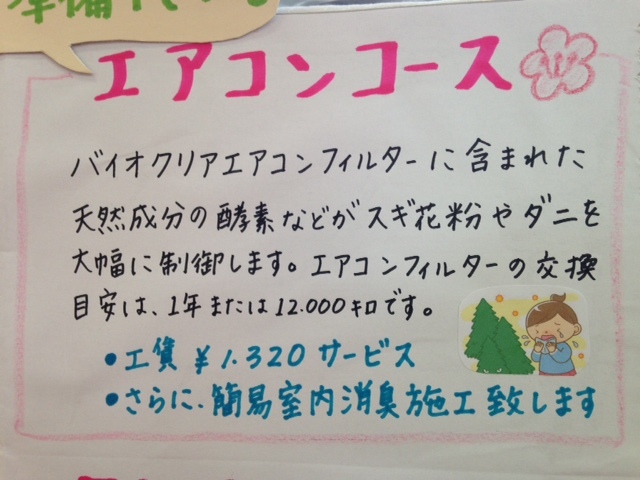 エアコンコース
バイオクリアエアコンフィルターに含まれた
天然成分の酵素などがスギ花粉やダニを
大幅に制御します。エアコンフィルターの交換
目安は、1年または12.000キロです。
•工賃¥1.320サービス
•さらに、簡易室内消臭施工致します